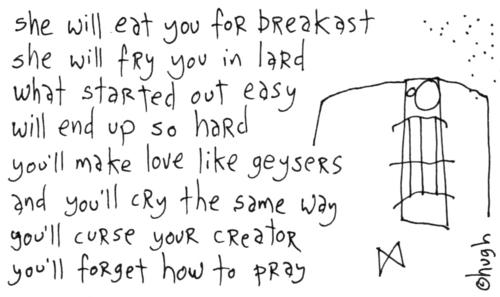 she will eat you for breakast
she will fry you in lard
what started out easy
will end up so hard
you'll make love like geysers
and you'll cry the same way
you'll curse your creator
you'll forget how to pray
©hugh